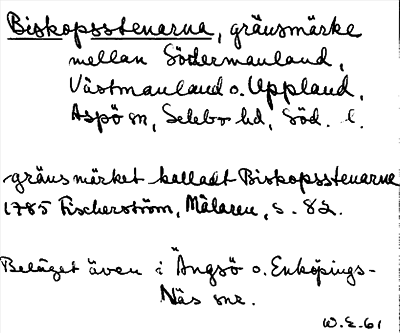 Biskopsstenarna, gränsmärke
mellan Södermanland,
Västmanland o. Uppland,
Aspö sn, Selebo hd, Söd. l.
gränsmärket kalladt Biskopsstenarna
1785 Fischerström, Mälaren, s. 82.
Beläget även i Ängsö o. Enköpings-
Näs snr.
W.E. 61